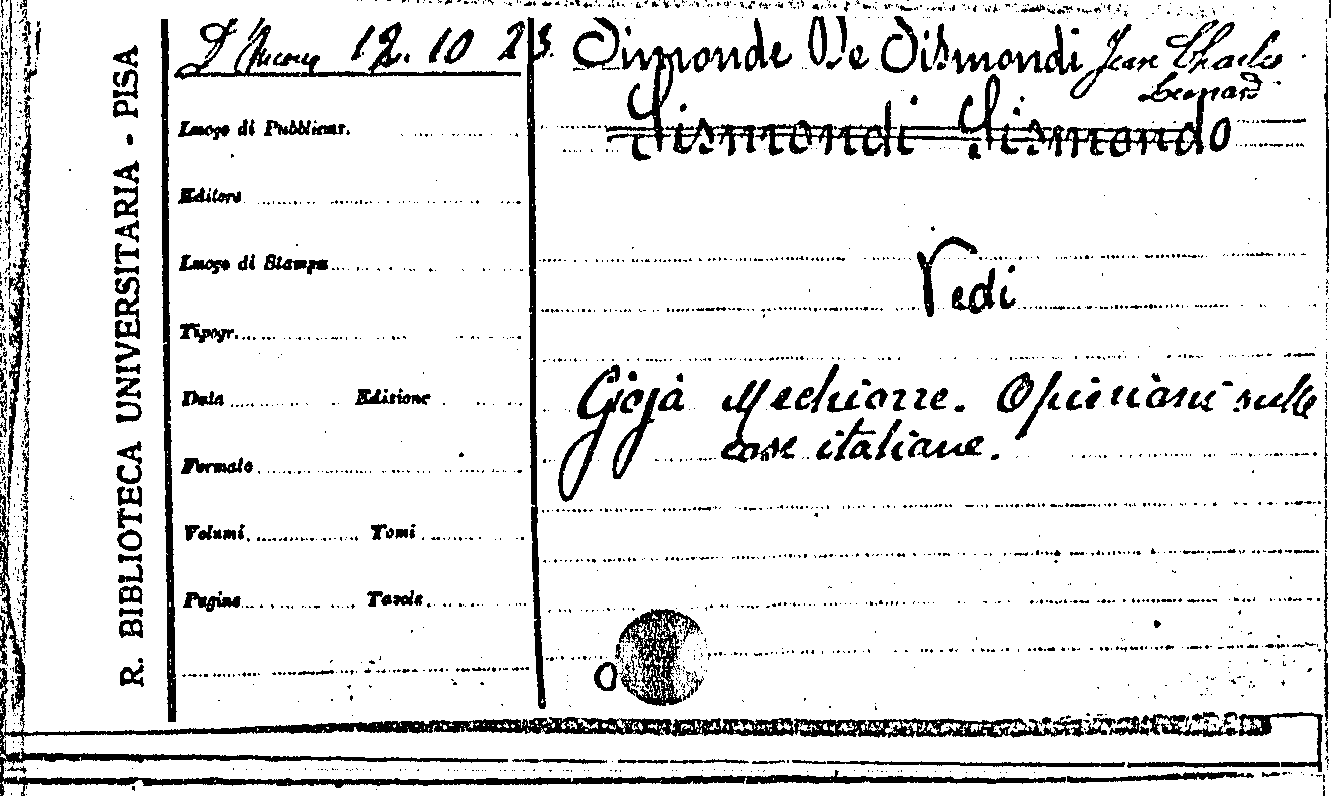 R. BIBLIOTECA UNIVERSITARIA - PISA
D'Ancona 12. 10 23.
Luogo di Pubblicaz.
Editore
Luogo di Stampa
Tipogr.
Data Edizione
Formato
Volumi Tomi
Pagine Tavole
Simonde De Sismondi Jean Charles
Leonard
Sismondi Sismondo
Vedi
Gioja Mechiorre. Opinioni sulle
cose italiane.
O